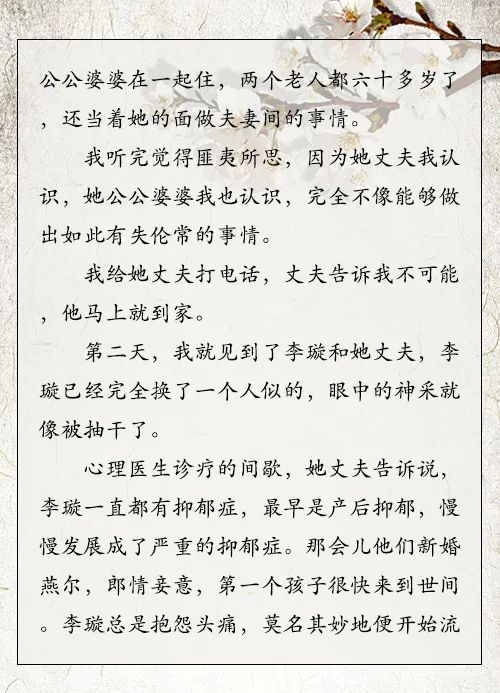 公公婆婆在一起住，两个老人都六十多岁了
，还当着她的面做夫妻间的事情。
我听完觉得匪夷所思，因为她丈夫我认
识，她公公婆婆我也认识，完全不像能够做
出如此有失伦常的事情。
我给她丈夫打电话，丈夫告诉我不可能
，他马上就到家。
第二天，我就见到了李璇和她丈夫，李
璇已经完全换了一个人似的，眼中的神采就
像被抽干了。
心理医生诊疗的间歇，她丈夫告诉说，
李璇一直都有抑郁症，最早是产后抑郁，慢
慢发展成了严重的抑郁症。那会儿他们新婚
燕尔，郎情妾意，第一个孩子很快来到世间
。李璇总是抱怨头痛，莫名其妙地便开始流